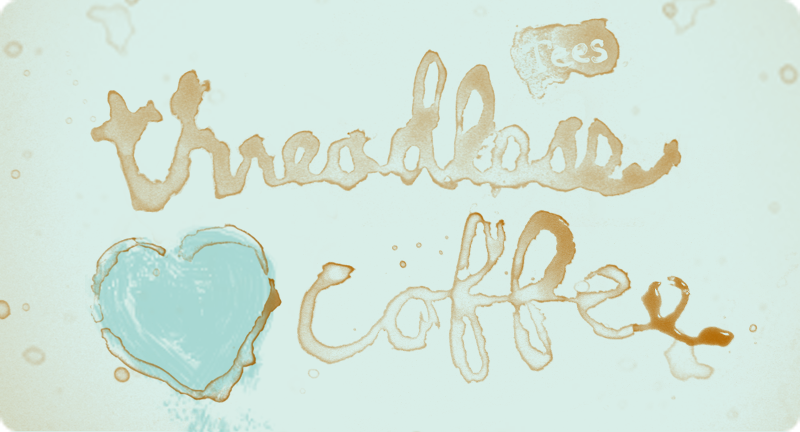 Tees
threadless
coffee